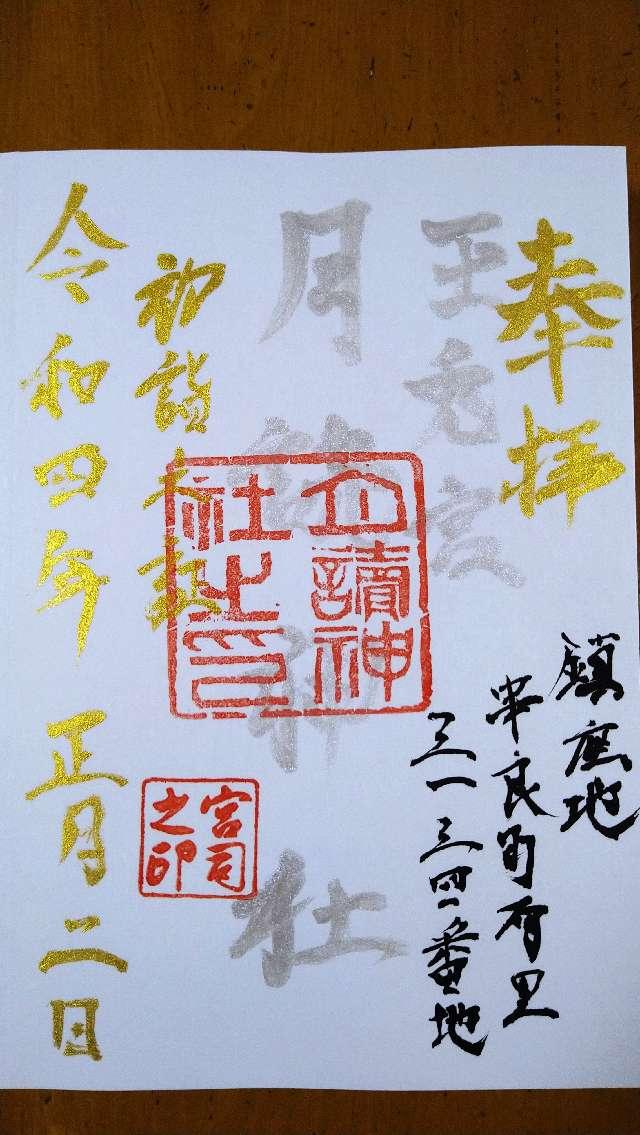 奉拝
鎮座地
串良町有里
三一三四番地
月読神社
月讀神社之印
初詣
宮司之印
令和四年正月二日